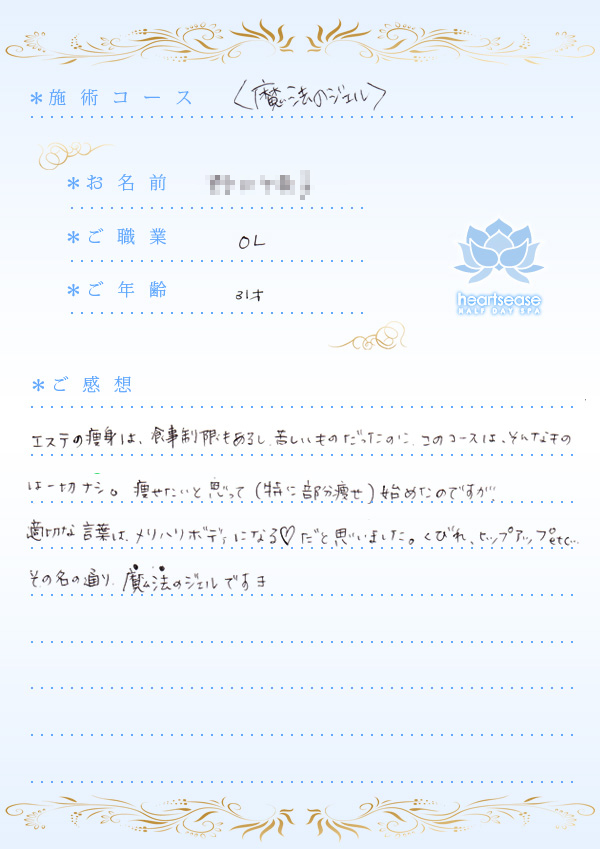 *施術コース 〈魔法のジェル〉
*お名前
*ご職業 OL
*ご年齢 31才
heartsease
HALF DAY SPA
*ご感想
エステの痩身は、食事制限もあるし、苦しいものだったのに、このコースは、そんなもの
は一切ナシ。痩せたいと思って(特に部分痩せ)始めたのですが、
適切な言葉は、メリハリボディになる♡だと思いました。くびれ、ヒップアップetc...
その名の通り、魔法のジェルです